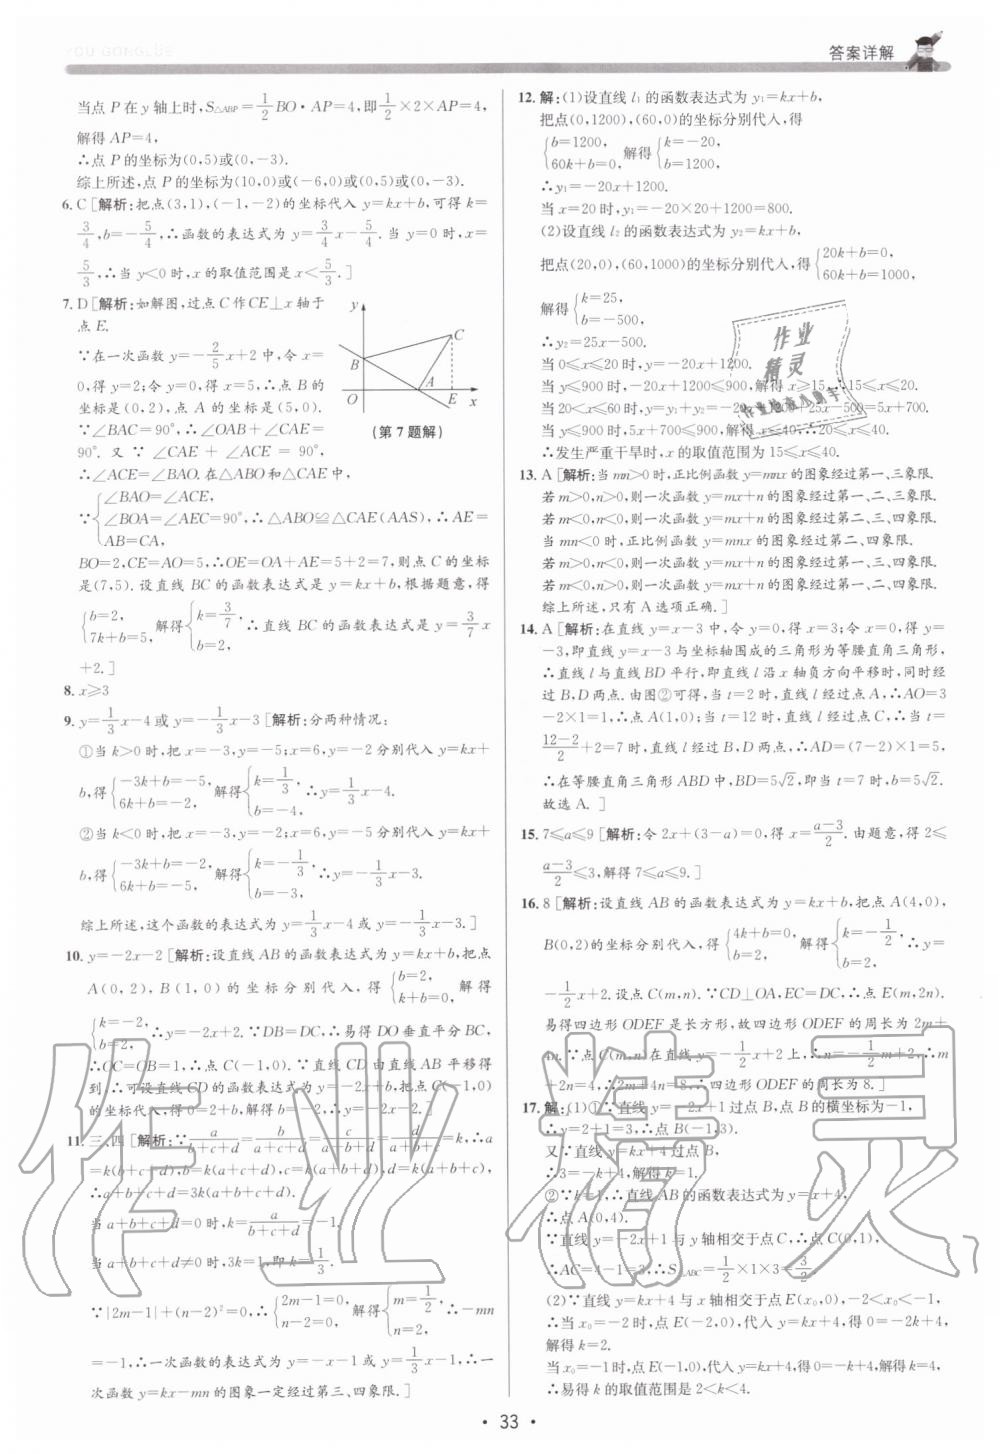 YOU GONGLÜE
答案详解
当点 P 在 y 轴上时,S△ABP=1/2 BO·AP=4,即1/2×2×AP=4,
解得 AP=4,
∴点 P 的坐标为(0,5)或(0,-3).
综上所述,点 P 的坐标为(10,0)或(-6,0)或(0,5)或(0,-3).
6. C [解析:把点(3,1),(-1,-2)的坐标代入 y=kx+b,可得 k=
3/4,b=-5/4,∴函数的表达式为 y=3/4x-5/4.当 y=0 时,x=
5/3,∴当 y<0 时,x 的取值范围是 x<5/3.]
7. D [解析:如解图,过点 C 作 CE⊥x 轴于
点 E.
∵在一次函数 y=-2/5x+2 中,令 x=
0,得 y=2;令 y=0,得 x=5,∴点 B 的
坐标是(0,2),点 A 的坐标是(5,0).
∵∠BAC=90°,∴∠OAB+∠CAE=
90°.又∵∠CAE+∠ACE=90°,
∴∠ACE=∠BAO.在△ABO和△CAE中,
∵{∠BAO=∠ACE,
∠BOA=∠AEC=90°,∴△ABO≌△CAE(AAS),∴AE=
AB=CA,
BO=2,CE=AO=5,∴OE=OA+AE=5+2=7,则点 C 的坐标
是(7,5).设直线 BC 的函数表达式是 y=kx+b,根据题意,得
{b=2, 7k+b=5,解得{k=3/7, b=2,∴直线 BC 的函数表达式是 y=3/7x
+2.]
y
C
B
A
O
E
x
(第 7 题解)
8. x≥3
9. y=1/3x-4 或 y=-1/3x-3 [解析:分两种情况:
①当 k>0 时,把 x=-3,y=-5;x=6,y=-2 分别代入 y=kx+
b,得{-3k+b=-5, 6k+b=-2,解得{k=1/3, b=-4,∴y=1/3x-4.
②当 k<0 时,把 x=-3,y=-2;x=6,y=-5 分别代入 y=kx+
b,得{-3k+b=-2, 6k+b=-5,解得{k=-1/3, b=-3,∴y=-1/3x-3.
综上所述,这个函数的表达式为 y=1/3x-4 或 y=-1/3x-3.]
10. y=-2x-2 [解析:设直线 AB 的函数表达式为 y=kx+b,把点
A(0,2),B(1,0)的坐标分别代入,得{b=2, k+b=0,解得
{k=-2, b=2,∴y=-2x+2.∵DB=DC,∴易得 DO 垂直平分 BC,
∴OC=OB=1,∴点 C(-1,0).∵直线 CD 由直线 AB 平移得
到,∴可设直线 CD 的函数表达式为 y=-2x+b,把点 C(-1,0)
的坐标代入,得 0=2+b,解得 b=-2,∴y=-2x-2.]
11. 三、四 [解析:∵a/(b+c+d)=b/(a+c+d)=c/(a+b+d)=d/(a+b+c)=k,∴a
=k(b+c+d),b=k(a+c+d),c=k(a+b+d),d=k(a+b+c),
∴a+b+c+d=3k(a+b+c+d).
当 a+b+c+d=0 时,k=a/(b+c+d)=-1,
当 a+b+c+d≠0 时,3k=1,即 k=1/3.
∵|2m-1|+(n-2)²=0,∴{2m-1=0, n-2=0,解得{m=1/2, n=2,∴-mn
=-1,∴一次函数的表达式为 y=-x-1 或 y=1/3x-1,∴一
次函数 y=kx-mn 的图象一定经过第三、四象限.]
12. 解:(1)设直线 l₁ 的函数表达式为 y₁=kx+b,
把点(0,1200),(60,0)的坐标分别代入,得
{b=1200, 60k+b=0,解得{k=-20, b=1200,
∴y₁=-20x+1200.
当 x=20 时,y₁=-20×20+1200=800.
(2)设直线 l₂ 的函数表达式为 y₂=kx+b,
把点(20,0),(60,1000)的坐标分别代入,得{20k+b=0, 60k+b=1000,
解得{k=25, b=-500,
∴y₂=25x-500.
当 0≤x≤20 时,y=-20x+1200.
当 y≤900 时,-20x+1200≤900,解得 x≥15,∴15≤x≤20.
当 20<x≤60 时,y=y₁+y₂=-20x+1200+25x-500=5x+700.
当 y≤900 时,5x+700≤900,解得 x≤40,∴20<x≤40.
∴发生严重干旱时,x 的取值范围为 15≤x≤40.
13. A [解析:当 mn>0 时,正比例函数 y=mnx 的图象经过第一、三象限.
若 m>0,n>0,则一次函数 y=mx+n 的图象经过第一、二、三象限.
若 m<0,n<0,则一次函数 y=mx+n 的图象经过第二、三、四象限.
当 mn<0 时,正比例函数 y=mnx 的图象经过第二、四象限.
若 m>0,n<0,则一次函数 y=mx+n 的图象经过第一、三、四象限.
若 m<0,n>0,则一次函数 y=mx+n 的图象经过第一、二、四象限.
综上所述,只有 A 选项正确.]
14. A [解析:在直线 y=x-3 中,令 y=0,得 x=3;令 x=0,得 y=
-3,即直线 y=x-3 与坐标轴围成的三角形为等腰直角三角形,
∴直线 l 与直线 BD 平行,即直线 l 沿 x 轴负方向平移时,同时经
过 B,D 两点.由图②可得,当 t=2 时,直线 l 经过点 A,∴AO=3
-2×1=1,∴点 A(1,0);当 t=12 时,直线 l 经过点 C,∴当 t=
(12-2)/2+2=7 时,直线 l 经过 B,D 两点,∴AD=(7-2)×1=5,
∴在等腰直角三角形 ABD 中,BD=5√2,即当 t=7 时,b=5√2.
故选 A.]
15. 7≤a≤9 [解析:令 2x+(3-a)=0,得 x=(a-3)/2.由题意,得 2≤
(a-3)/2≤3,解得 7≤a≤9.]
16. 8 [解析:设直线 AB 的函数表达式为 y=kx+b,把点 A(4,0),
B(0,2)的坐标分别代入,得{4k+b=0, b=2,解得{k=-1/2, b=2,∴y=
-1/2x+2.设点 C(m,n).∵CD⊥OA,EC=DC,∴点 E(m,2n).
易得四边形 ODEF 是长方形,故四边形 ODEF 的周长为 2m+
4n.∵点 C(m,n)在直线 y=-1/2x+2 上,∴n=-1/2m+2,∴m
+2n=4,∴2m+4n=8,∴四边形 ODEF 的周长为 8.]
17. 解:(1)①∵直线 y=-2x+1 过点 B,点 B 的横坐标为-1,
∴y=2+1=3,∴点 B(-1,3).
又∵直线 y=kx+4 过点 B,
∴3=-k+4,解得 k=1.
②∵k=1,∴直线 AB 的函数表达式为 y=x+4,
∴点 A(0,4).
∵直线 y=-2x+1 与 y 轴相交于点 C,∴点 C(0,1),
∴AC=4-1=3,∴S△ABC=1/2×1×3=3/2.
(2)∵直线 y=kx+4 与 x 轴相交于点 E(x₀,0),-2<x₀<-1,
∴当 x₀=-2 时,点 E(-2,0),代入 y=kx+4,得 0=-2k+4,
解得 k=2.
当 x₀=-1 时,点 E(-1,0),代入 y=kx+4,得 0=-k+4,解得 k=4,
∴易得 k 的取值范围是 2<k<4.
作业
精灵
作业精灵
· 33 ·